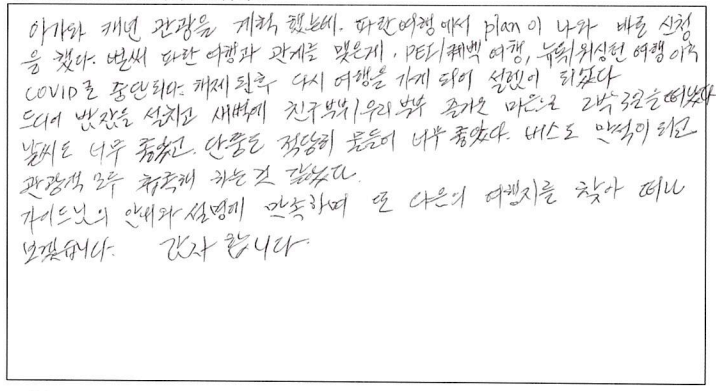 아가와 캐년 관광을 계획 했는데. 파란여행에서 plan이 나와 바로 신청
을 했다. 벌써 파란여행과 관계를 맺은게. PEI/퀘백 여행, 뉴욕/워싱턴 여행 이후
COVID로 중단되다. 해제된후 다시 여행을 가게 되어 설렜이 되었다
드디어 밤잠을 설치고 새벽에 친구부부/우리부부 즐거운 마음으로 2박3일을 떠났다
날씨도 너무 좋았고. 단풍도 적당히 물들어 너무 좋았다. 버스도 만석이 되고
관광객 모두 흡족해 하는것 같았다.
가이드님의 안내와 설명에 만족하며 또 다음의 여행지를 찾아 떠나
보겠습니다. 감사 합니다.